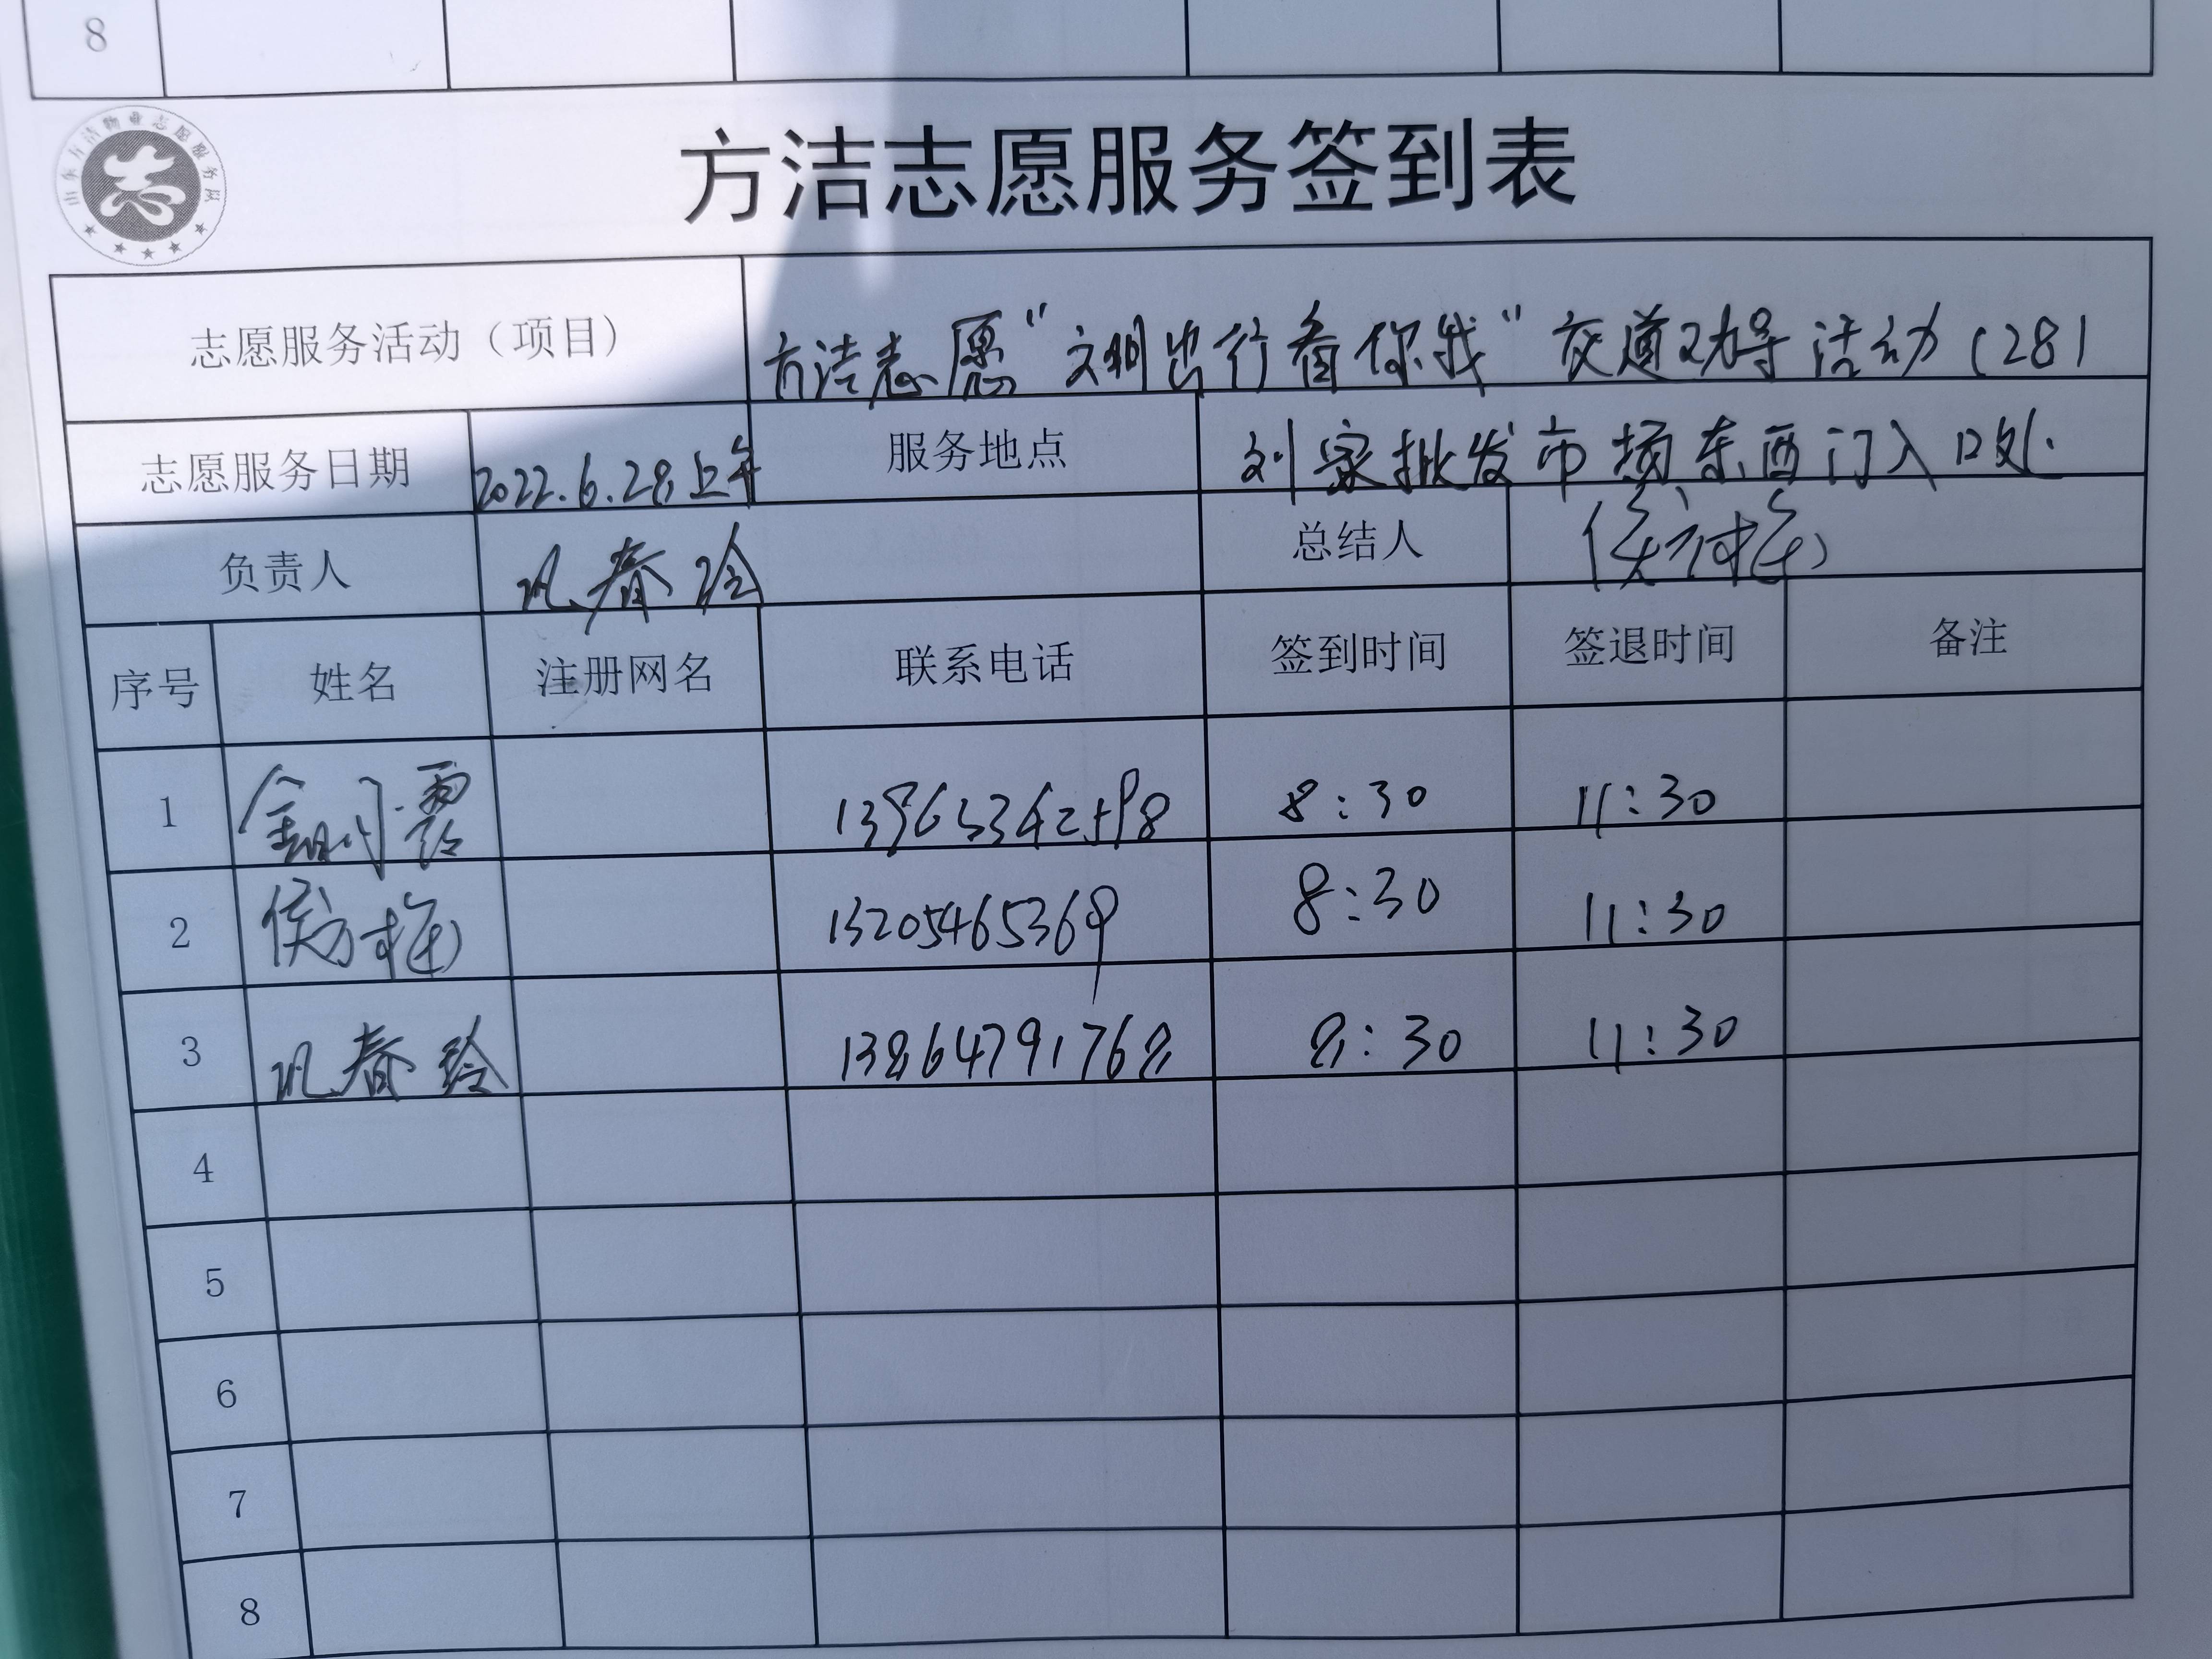 8
山东方洁物业志愿服务队
志
方洁志愿服务签到表
志愿服务活动（项目） 方洁志愿"文明出行看你我"交通劝导活动(28)
志愿服务日期 2022.6.28上午 服务地点 刘家批发市场东西门入口处
负责人 巩春玲 总结人 侯方梅
序号 姓名 注册网名 联系电话 签到时间 签退时间 备注
1 8:30 11:30
2 侯方梅 13205465369 8:30 11:30
3 巩春玲 13864791768 8:30 11:30
4
5
6
7
8